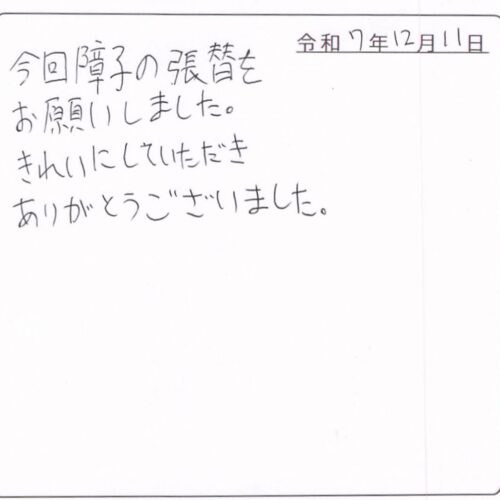 令和7年12月11日
今回障子の張替を
お願いしました。
きれいにしていただき
ありがとうございました。